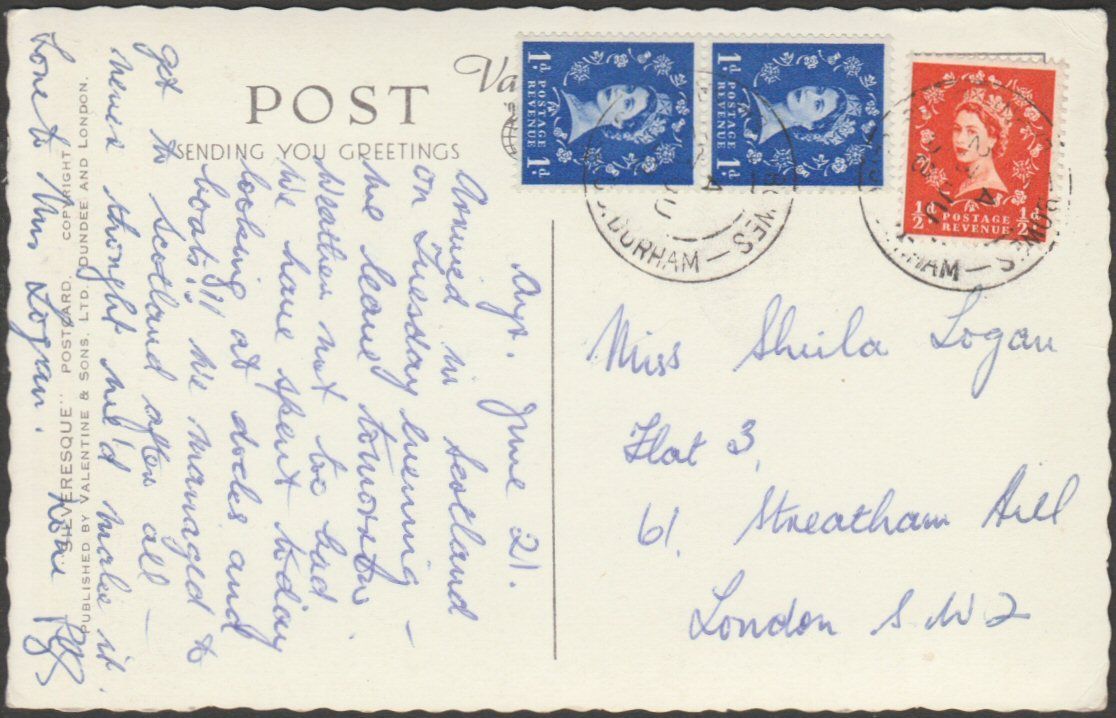 POST
SENDING YOU GREETINGS
Va
1d POSTAGE REVENUE 1d
1d POSTAGE REVENUE 1d
½d POSTAGE REVENUE ½d
CO. DURHAM —
HAM — S
June 21.
Arrived in Scotland
on Tuesday evening —
We leave tomorrow.
Weather not too bad
We have spent today
looking at docks and
boats!! We managed to
get to Scotland after all —
never thought we'd make it.
Love to Mrs Logan.
Love
"SILVERESQUE" POSTCARD. COPYRIGHT
PUBLISHED BY VALENTINE & SONS, LTD. DUNDEE AND LONDON.
Miss Sheila Logan
Flat 3,
61, Streatham Hill
London S.W.2